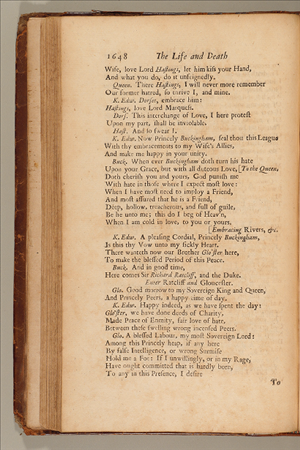 1648 The Life and Death
Wife, love Lord Hastings, let him kiss your Hand,
And what you do, do it unfeignedly.
Queen. There Hastings, I will never more remember
Our former hatred, so thrive I, and mine.
K. Edw. Dorset, embrace him:
Hastings, love Lord Marquess.
Dors. This interchange of Love, I here protest
Upon my part, shall be inviolable.
Hast. And so swear I.
K. Edw. Now Princely Buckingham, seal thou this League
With thy embracements to my Wife's Allies,
And make me happy in your unity.
Buck. When ever Buckingham doth turn his hate
Upon your Grace, but with all duteous Love, [To the Queen.
Doth cherish you and yours, God punish me
With hate in those where I expect most love:
When I have most need to imploy a Friend,
And most assured that he is a Friend,
Deep, hollow, treacherous, and full of guile,
Be he unto me; this do I beg of Heav'n,
When I am cold in love, to you or yours.
Embracing Rivers, &c.
K. Edw. A pleasing Cordial, Princely Buckingham,
Is this thy Vow unto my sickly Heart.
There wanteth now our Brother Glo'ster here,
To make the blessed Period of this Peace.
Buck. And in good time,
Here comes Sir Richard Ratcliff, and the Duke.
Enter Ratcliff and Gloucester.
Glo. Good morrow to my Sovereign King and Queen,
And Princely Peers, a happy time of day.
K. Edw. Happy indeed, as we have spent the day:
Glo'ster, we have done deeds of Charity,
Made Peace of Enmity, fair love of hate,
Between these swelling wrong incensed Peers.
Glo. A blessed Labour, my most Sovereign Lord:
Among this Princely heap, if any here
By false Intelligence, or wrong Surmise
Hold me a Foe: If I unwillingly, or in my Rage,
Have ought committed that is hardly born,
To any in this Presence, I desire
To